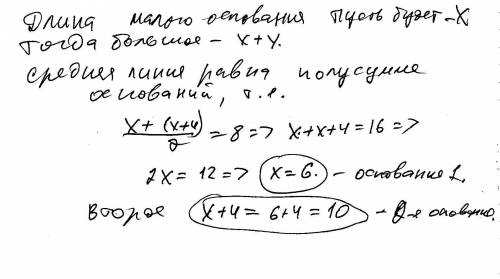 Длина малого основания пусть будет - x
тогда большое - x+4.
средняя линия равна полусумме
оснований, т.е.
x + (x+4) / 2 = 8 => x+x+4=16 =>
2x = 12 => x=6. - основание 1.
второе x+4 = 6+4 = 10 - 2-е основание.